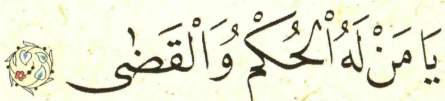 يَا مَنْ لَهُ الْحُكْمُ وَالْقَضٰى